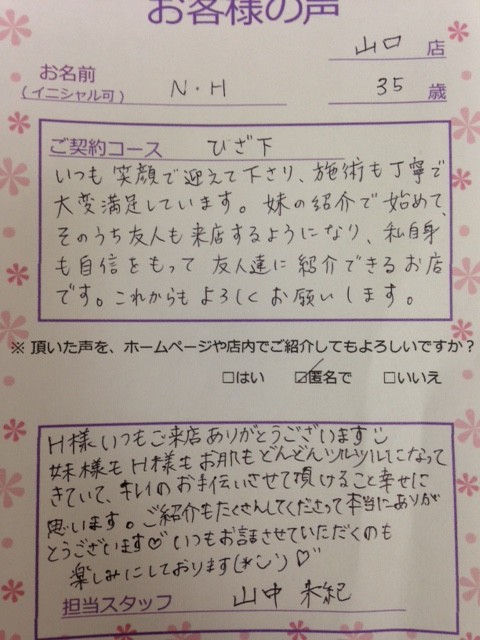 お客様の声
山口 店
お名前
(イニシャル可) N・H 35 歳
ご契約コース ひざ下
いつも笑顔で迎えて下さり、施術も丁寧で
大変満足しています。妹の紹介で始めて、
そのうち友人も来店するようになり、私自身
も自信をもって友人達に紹介できるお店
です。これからもよろしくお願いします。
※ 頂いた声を、ホームページや店内でご紹介してもよろしいですか?
□はい ☑匿名で □いいえ
H様いつもご来店ありがとうございます
妹様もH様もお肌もどんどんツルツルになって
きていて、キレイのお手伝いさせて頂けること幸せに
思います。ご紹介もたくさんしてくださって本当にありが
とうございます♡いつもお話させていただくのも
楽しみにしております(*^^*)♡
担当スタッフ 山中 朱紀